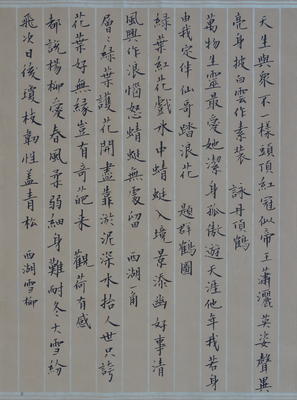 天生與眾不一樣頭頂紅冠似帝王瀟灑英姿聲異
亮身披白雲作素裝 詠丹頂鶴
萬物生靈最愛她潔身孤傲遊天涯他年我若身
由我定伴仙哥踏浪花 題群鶴圖
綠葉紅花戲水中蜻蜓入境景添幽好事清
風興作浪惱怒蜻蜓無處留 西湖一角
層層綠葉護花開盡靠淤泥深水抬人世只誇
花葉好無緣豈有奇葩來 觀荷有感
都說楊柳愛春風柔弱細身難耐冬大雪紛
飛次日後瓊枝韌性蓋青松 西湖雪柳